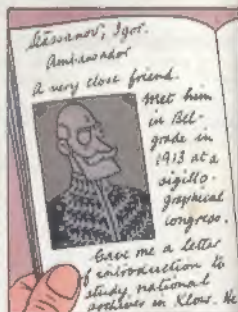 Stassanov, Igor.
Ambassador
A very close friend.
Met him
in Bel-
grade in
1913 at a
sigillo-
graphical
congress.
Gave me a letter
of introduction to
study national
archives in Klow. He